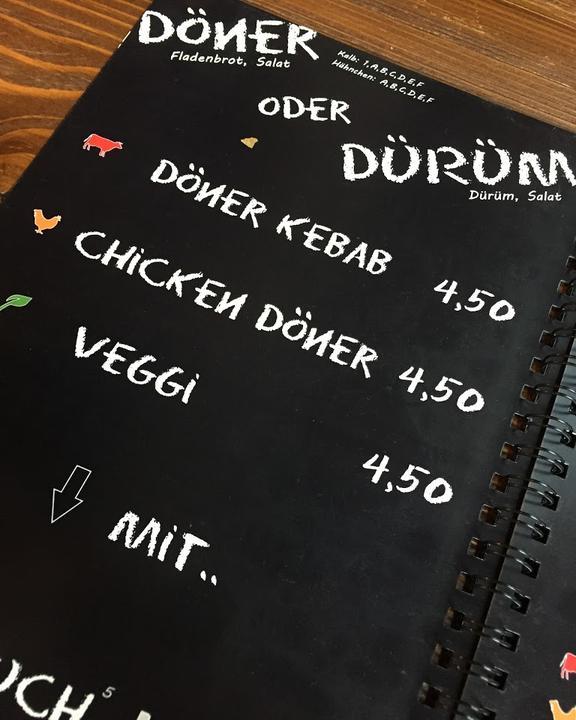 DÖNER
Fladenbrot, Salat
Kalb: 1,A,B,C,D,E,F
Hähnchen: A,B,C,D,E,F
ODER
DÜRÜM
Dürüm, Salat
DÖNER KEBAB 4,50
CHiCKEN DÖNER 4,50
VEGGi 4,50
MiT..
5